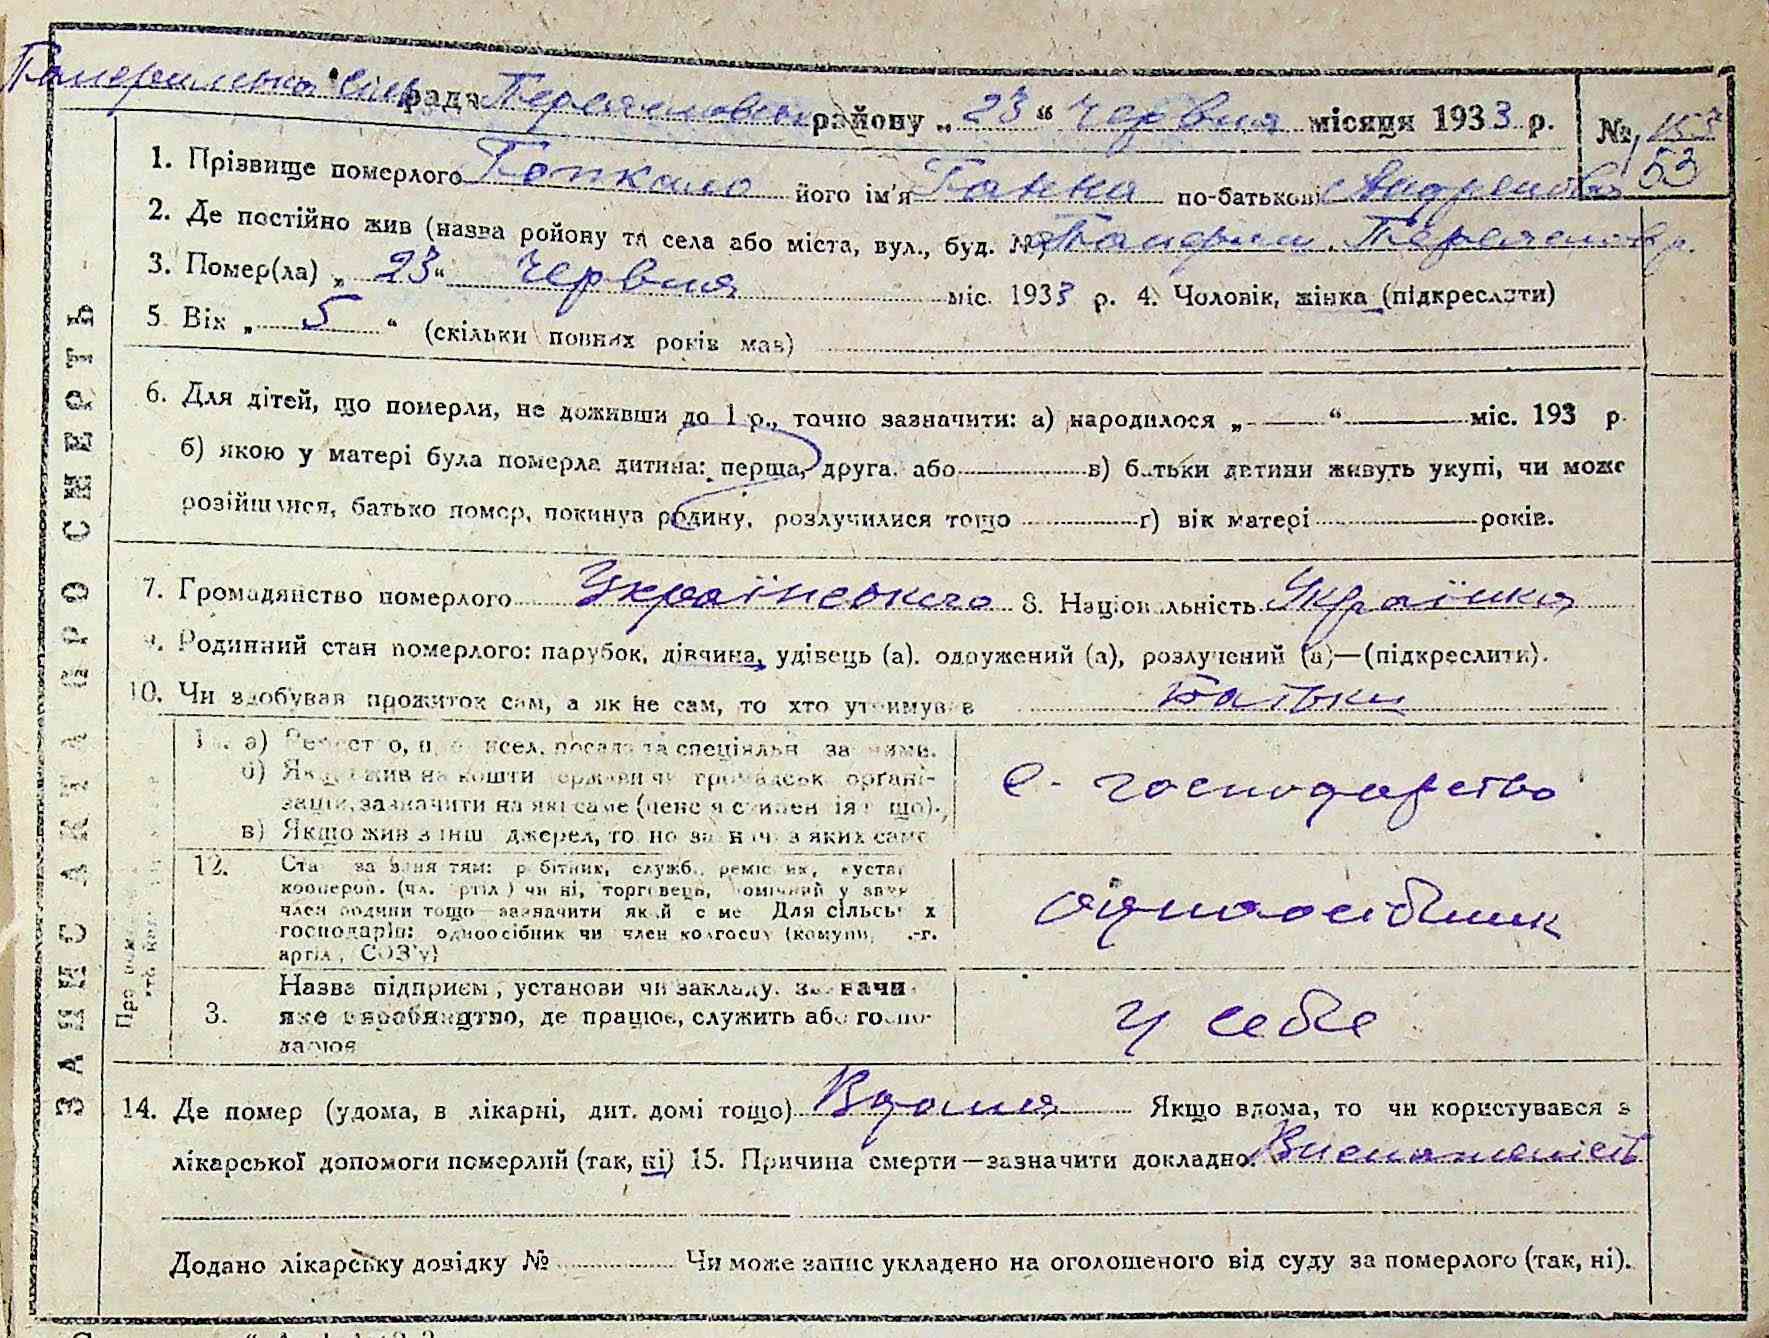 рада Переяславськ району „ 23 “ Червня місяця 1933 р. № 153
53
1. Прізвище померлого його ім'я Ганна по-батькові Андреновна
2. Де постійно жив (назва ройону та села або міста, вул., буд. №)
3. Помер(ла) „ 23 “ Червня міс. 1933 р. 4. Чоловік, жінка (підкреслити)
5. Вік „ 5 “ (скільки повних років мав)
6. Для дітей, що померли, не доживши до 1 р., точно зазначити: а) народилося „ “ міс. 193 р.
б) якою у матері була померла дитина: перша, друга. або в) батьки дитини живуть укупі, чи може
розійшлися, батько помер, покинув родину, розлучилися тощо г) вік матері років.
7. Громадянство померлого Українського 8. Національність Українка
9. Родинний стан померлого: парубок, дівчина, удівець (а). одружений (а), розлучений (а)—(підкреслити).
10. Чи здобував прожиток сам, а як не сам, то хто утримував Батьки
а) посада та спеціяльн
б) Якщо жив на кошти держави чи громадськ. органі-
зації, зазначити на які саме
в) Якщо жив з інш джерел, з яких саме
с-господарство
12. робітник, службов., реміс
кооперов. (чл. артіл.) чи ні, торговець,
член родини тощо—зазначити який саме Для сільськ х
господарів: одноосібник чи член колгоспу (комуни, с.-г.
артіл., СОЗ'у)
одноосібник
3. Назва підприєм., установи чи закладу. зазначи
яке виробництво, де працює, служить або госпо-
дарює
у себе
14. Де помер (удома, в лікарні, дит. домі тощо) Вдома Якщо вдома, то чи користувався з
лікарської допомоги померлий (так, ні) 15. Причина смерти—зазначити докладно: Виснаженість
Додано лікарську довідку № Чи може запис укладено на оголошеного від суду за померлого (так, ні).
ЗАПИС АКТА ПРО СМЕРТЬ